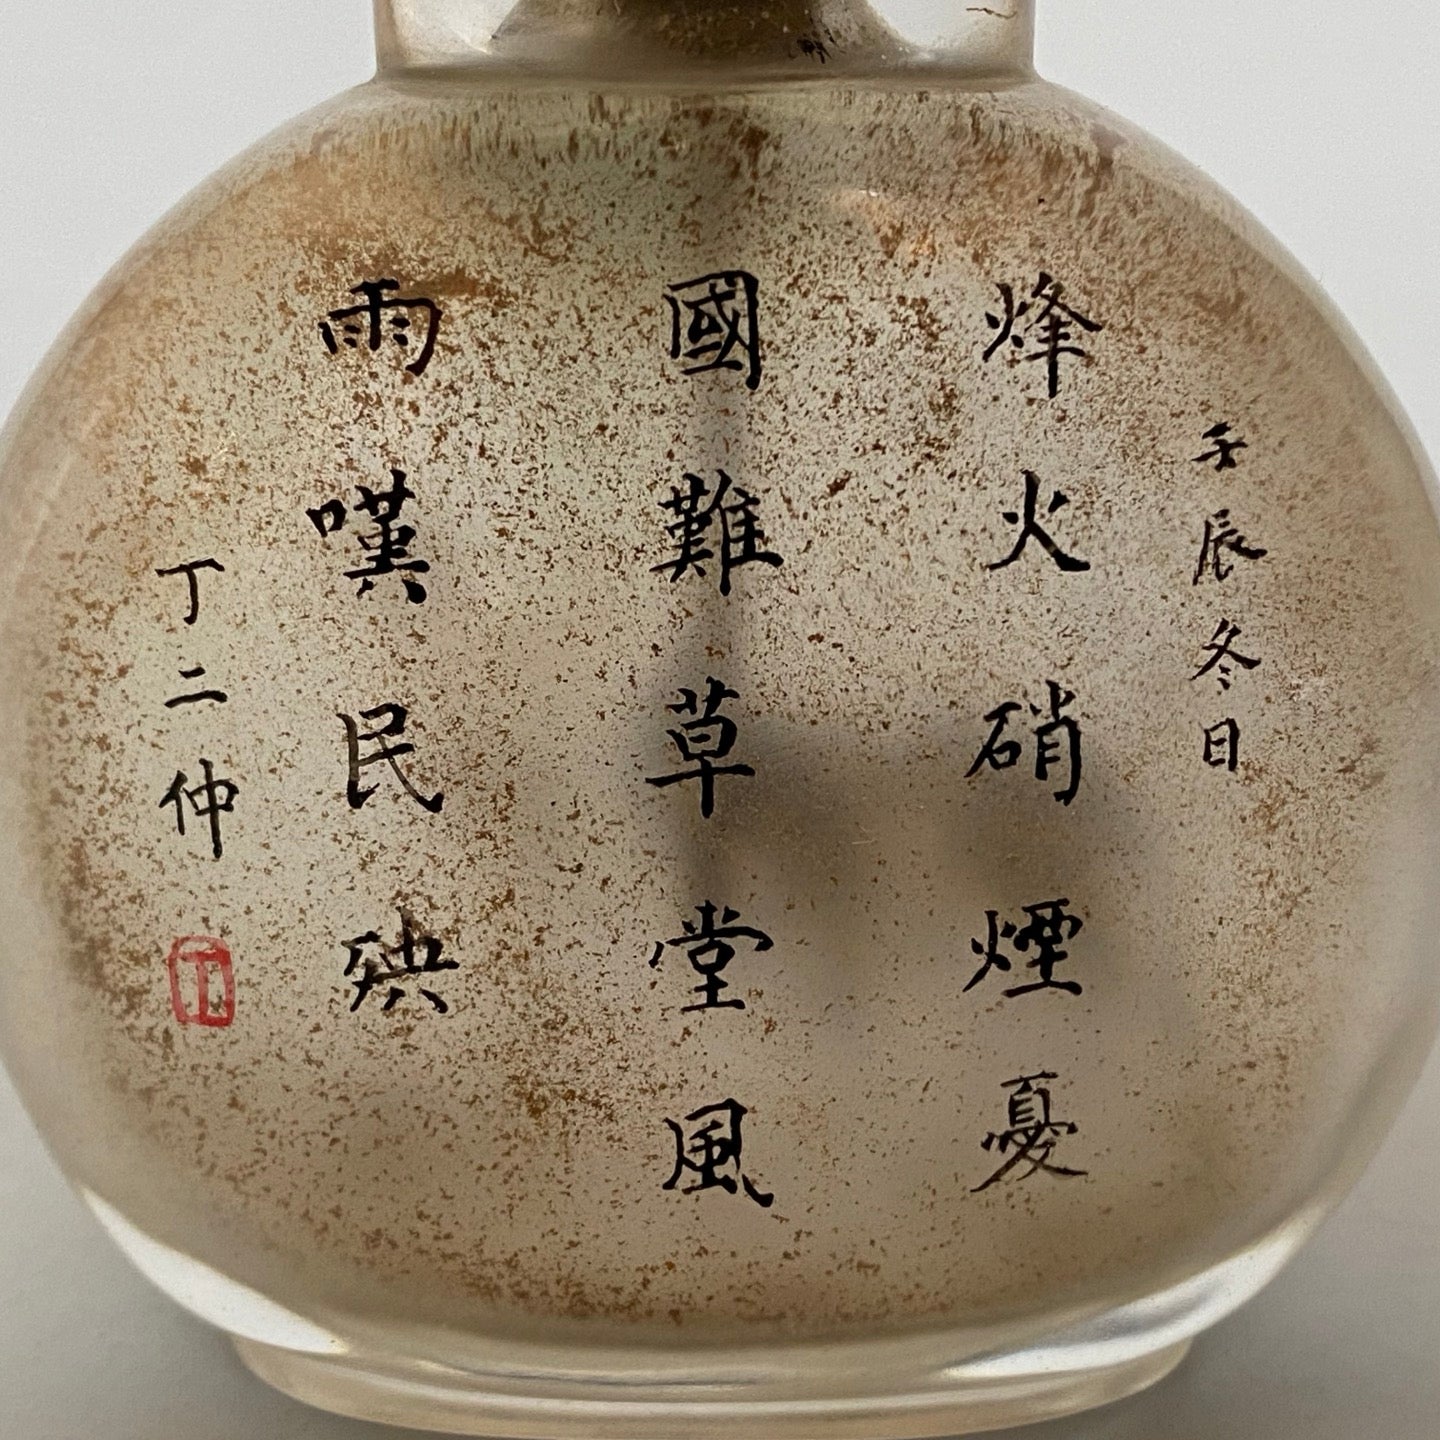 壬辰冬日
烽火硝煙憂
國難草堂風
雨嘆民殃
丁二仲
丁